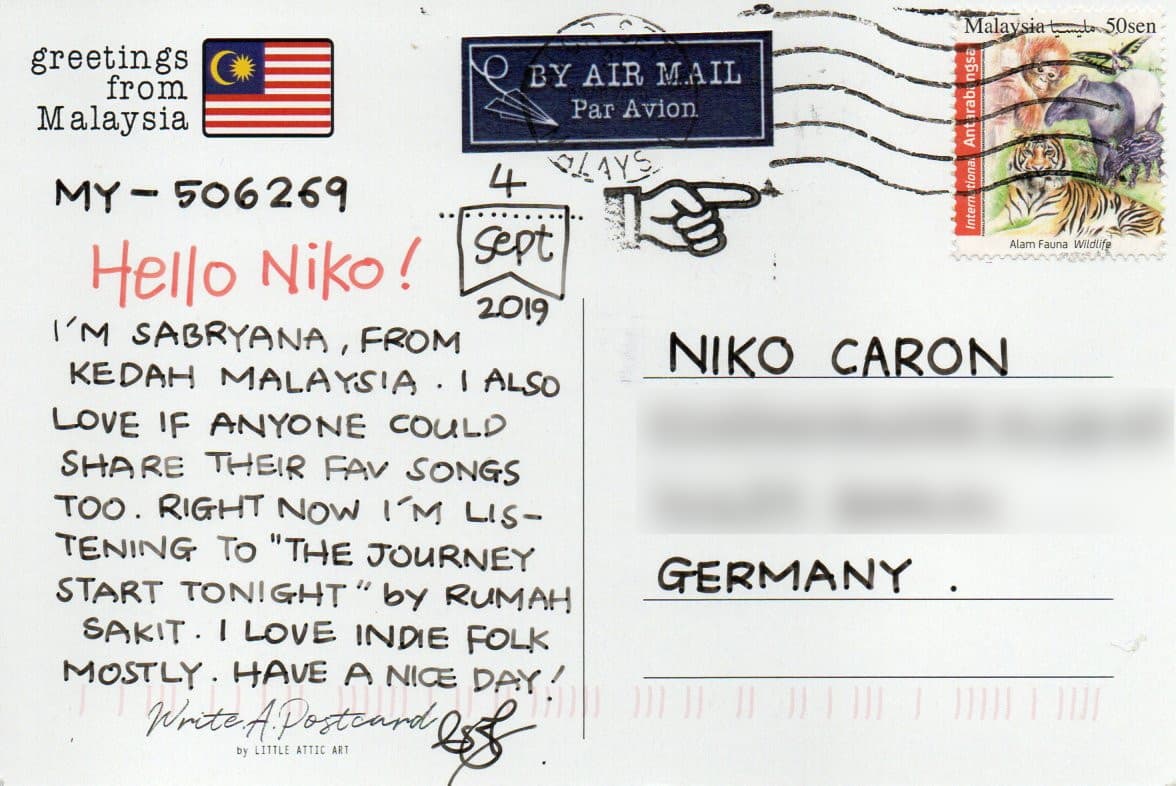 greetings
from
Malaysia
BY AIR MAIL
Par Avion
Malaysia مليسيا 50sen
International Antarabangsa
Alam Fauna Wildlife
MY-506269
4
Sept
2019
Hello Niko!
I'M SABRYANA, FROM
KEDAH MALAYSIA. I ALSO
LOVE IF ANYONE COULD
SHARE THEIR FAV SONGS
TOO. RIGHT NOW I'M LIS-
TENING TO "THE JOURNEY
START TONIGHT" by RUMAH
SAKIT. I LOVE INDIE FOLK
MOSTLY. HAVE A NICE DAY!
Write.A.Postcard
by LITTLE ATTIC ART
NIKO CARON
GERMANY.